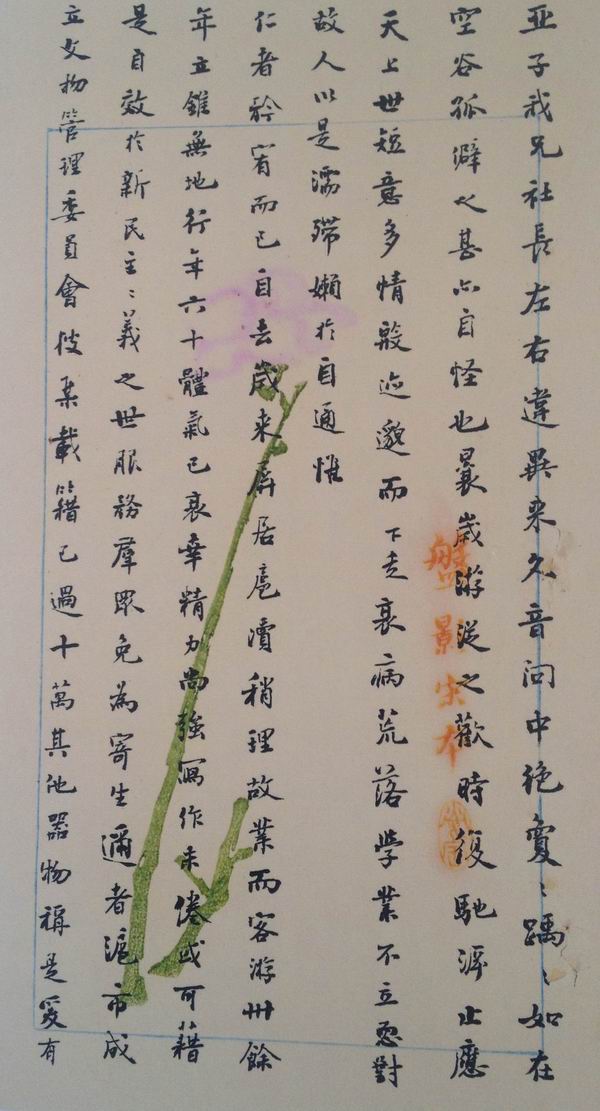 亚子我兄社長左右違異来久音问中绝敻〻踽〻如在
空谷孤癖之甚亦自怪也曩歲游從之歡時復馳泝止應
天上世短意多情殷迹邈而下走衰病荒落学業不立恧對
故人以是濡滞嬾於自通惟
仁者矜宥而已自去歲来屏居扈瀆稍理故業而客游卅餘
年立錐無地行年六十體氣已衰幸精力尚强寫作未倦或可藉
是自效於新民主〻義之世服務羣眾免為寄生邇者滬市成
立文物管理委員會載籍已過十萬其他器物稱是爰有
影宋本